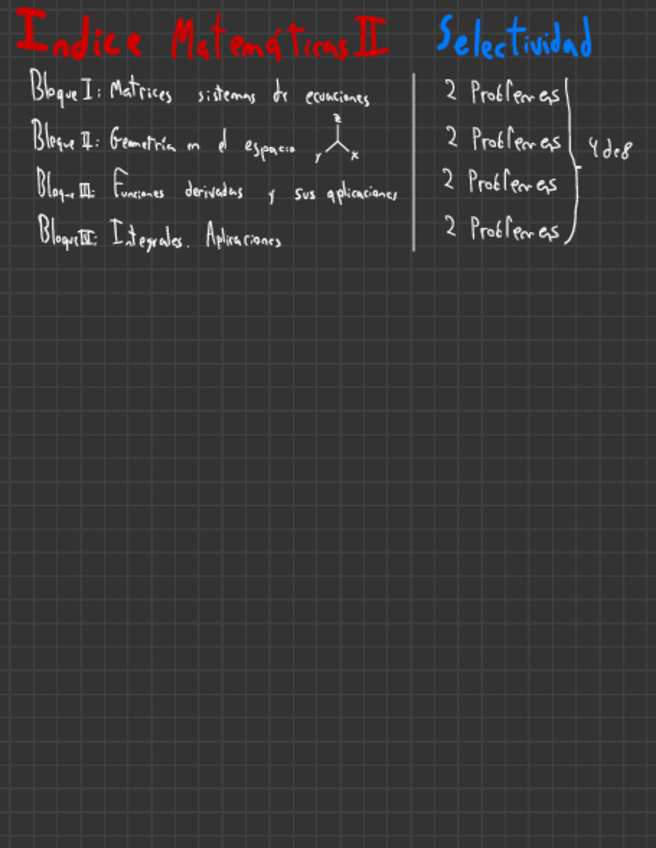 Indice Matemáticas II Selectividad
Bloque I: Matrices sistemas de ecuaciones 2 Problemas
Bloque II: Geometría en el espacio z y x 2 Problemas 4 de 8
Bloque III: Funciones derivadas y sus aplicaciones 2 Problemas
Bloque IV: Integrales. Aplicaciones 2 Problemas